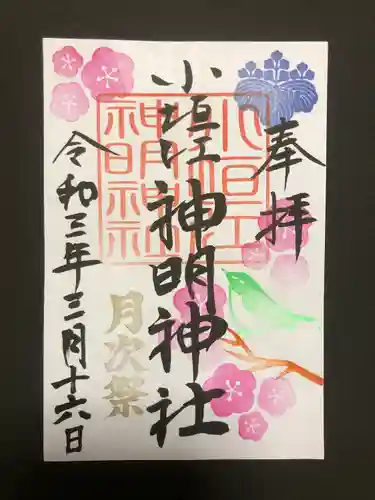 奉拝
小垣江神明神社
月次祭
令和三年三月十六日
小垣江
神明神社